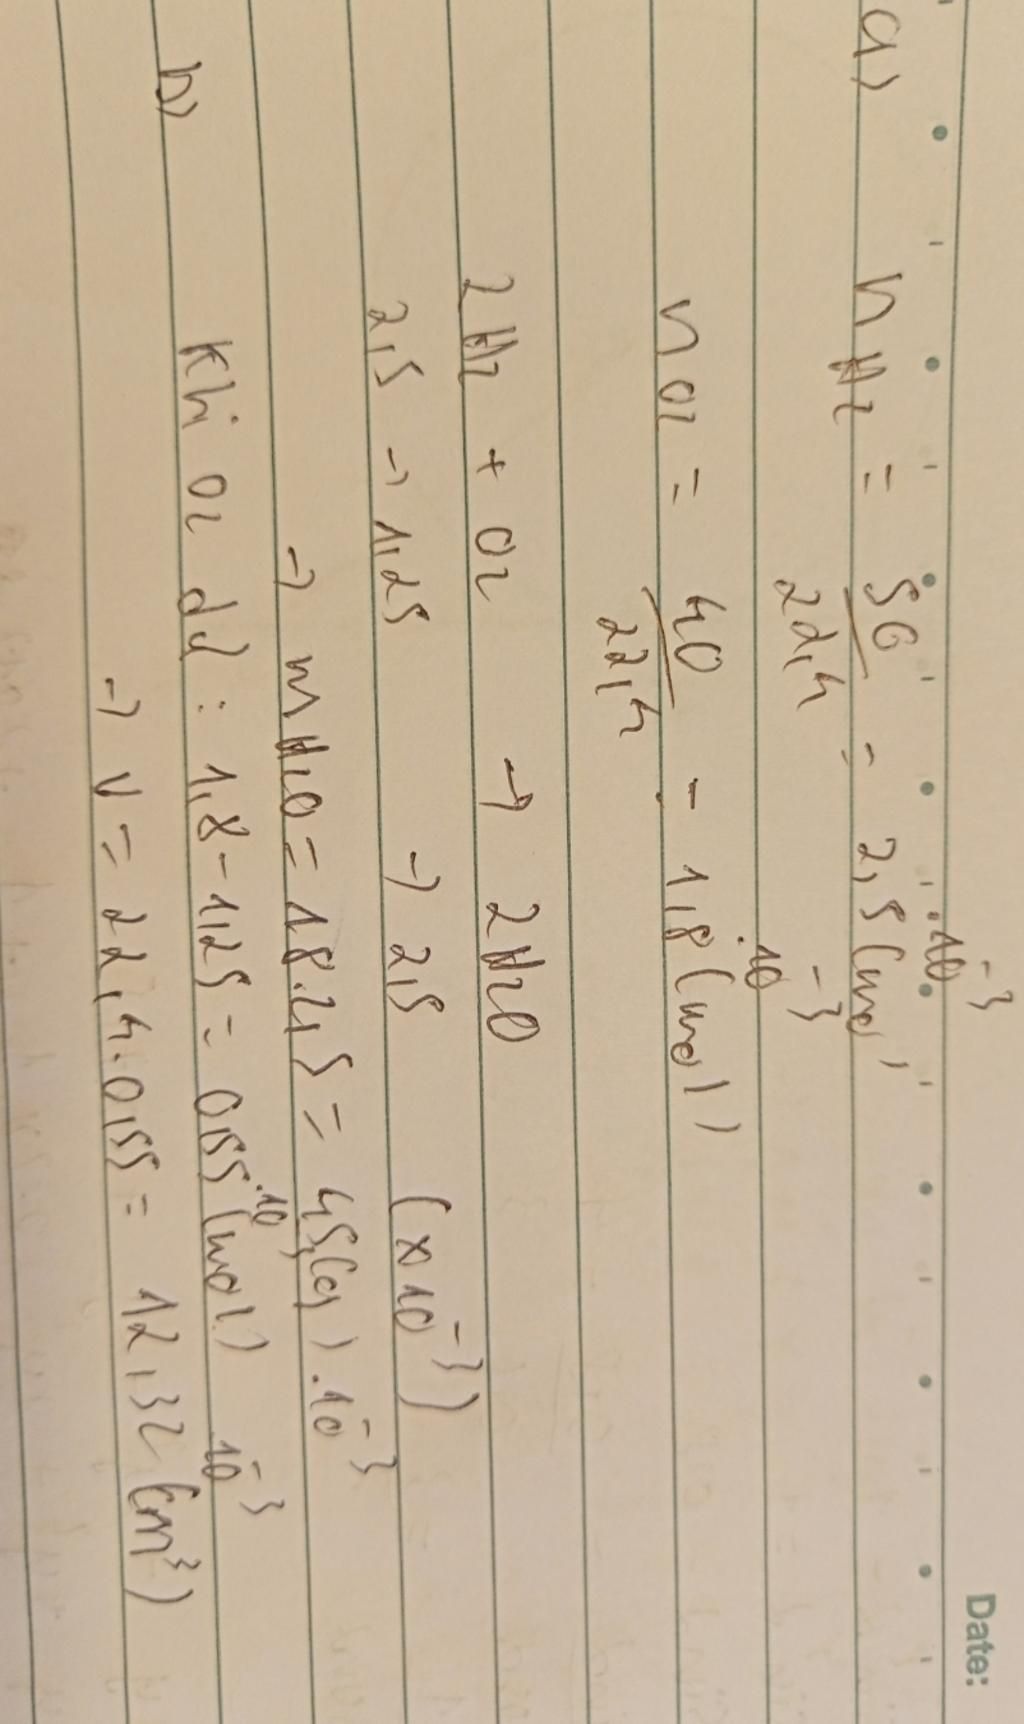 Date:
a) nH2 = 56/22,4 = 2,5 (mol) .10^-3
nO2 = 40/22,4 = 1,8 (mol) .10^-3
2H2 + O2 → 2H2O
2,5 → 1,25 → 2,5 (x10^-3)
→ mH2O = 18.2,5 = 45(g).10^-3
b) Khí O2 dd : 1,8 - 1,25 = 0,55 (mol) .10^-3
→ V = 22,4.0,55 = 12,32 (cm³)